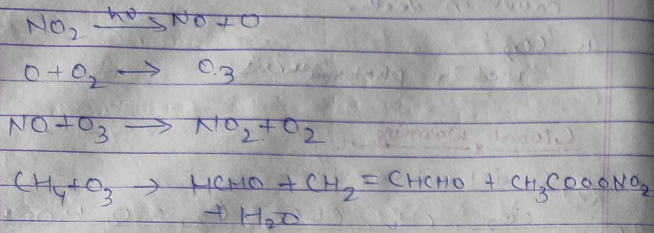 NO₂ hν→ NO + O
O + O₂ → O3
NO + O₃ → NO₂ + O₂
CH₄ + O₃ → HCHO + CH₂ = CHCHO + CH₃COOONO₂
+ H₂O